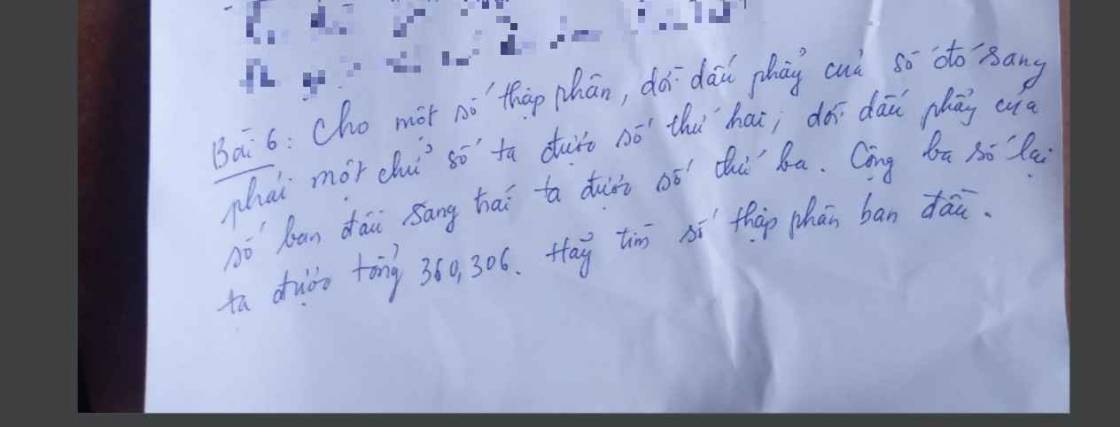 Bài 6: Cho một số thập phân, dời dấu phẩy của số đó sang
phải một chữ số ta được số thứ hai, dời dấu phẩy của
số ban đầu sang trái ta được số thứ ba. Cộng ba số lại
ta được tổng 360,306. Hãy tìm số thập phân ban đầu.